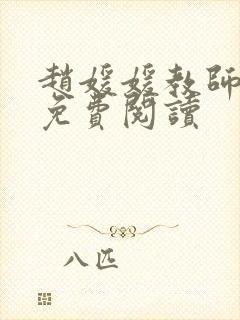 趙媛媛教師
免費閱讀
八匹